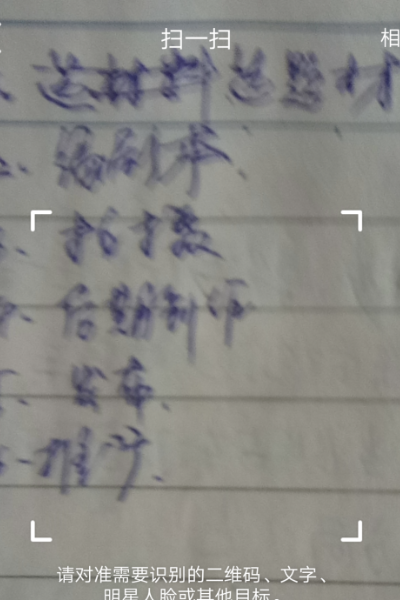 扫一扫
相
选材料 选题材
二、编剧本、
拍摄
后期制作
发布、
推广、
请对准需要识别的二维码、文字、
明星人脸或其他目标。